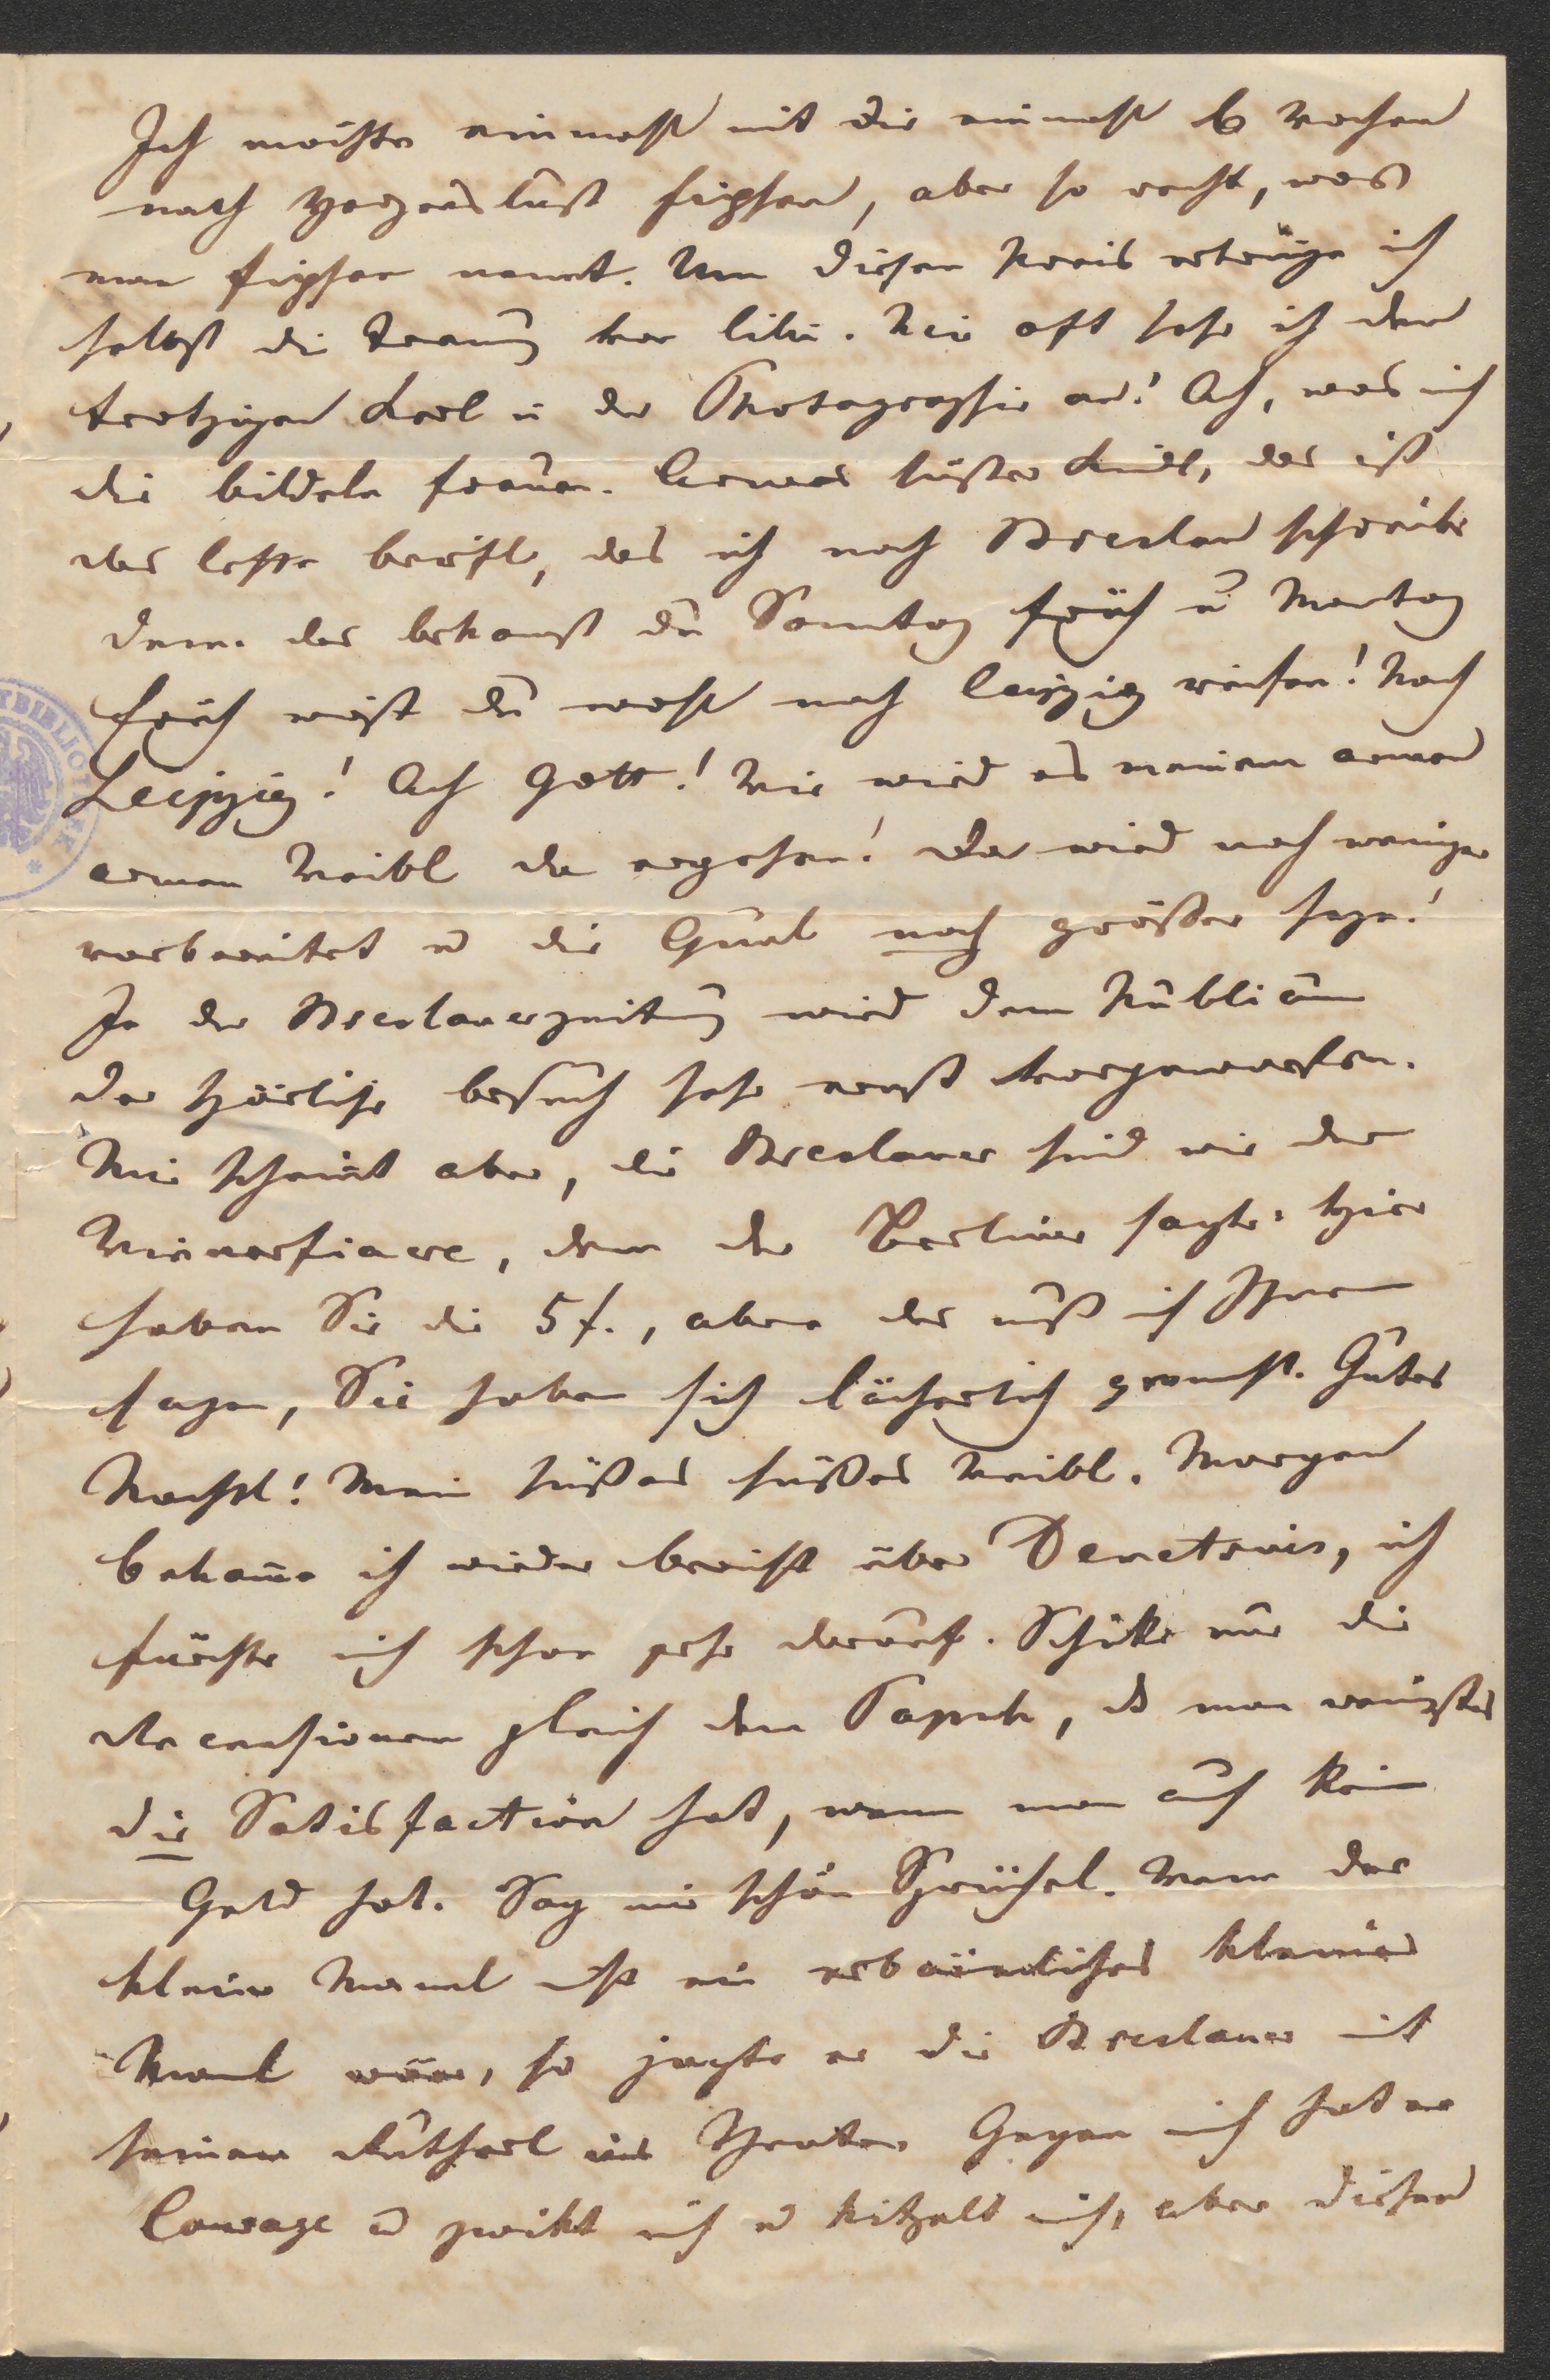 Ich möchte einmahl mit dir einmahl 6 Wochen
nach Herzenslust fischen, aber so recht, was
man fischen nennt. Um diesen Preis ertrüge ich
selbst die Trennung von Lili. Wie oft sehe ich den
trotzigen Kerl in der Photographie an! Ach, was mich
die bilderln freuen. Armes süßes Kindl, das ist
das letzte brieferl, das ich nach Breslau schreibe
denn das bekomst du Sontag früh u Montag
früh wirst du wohl nach Leipzig reisen! Nach
Leipzig! Ach Gott! Wie wird es meinem armen
armen Weibl da ergehen! Da wird noch weniger
vorbereitet u die Qual noch größer seyn!
In der Breslauerzeitung wird dem Publicum
der spärliche besuch sehr ernst vorgeworfen.
Mir scheint aber, die Breslauer sind wie der
Wienerfiacre, dem der Berliner sagte: Hier
haben Sie die 5 f., aber das muß ich Ihnen
sagen, Sie haben sich lächerlich gemacht. Gute
Nacht! Mein süßes süßes Weibl. Morgen
bekome ich wieder bericht über Demetrius, ich
fürchte mich schon sehr darauf. Schike nur die
Recensionen gleich dem Papsch, dß man wenigstens
die Satisfaction hat, wenn man auch kein
Geld hat. Sag mir schön Sprüchel. Wenn das
kleine Manl nicht ein erbärmliches kleines
Manl wäre, so jagte er die Breslauer mit
seinem Rutherl ins Theater. Gegen mich hat er
Courage u zwikt mich u kitzelt mich, aber diesen